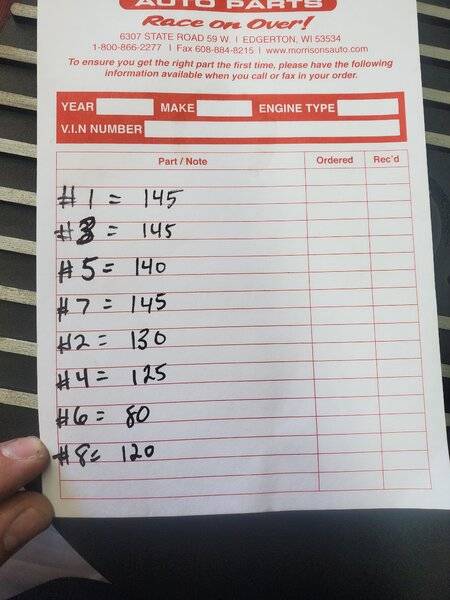 AUTO PARTS
Race on Over!
6307 STATE ROAD 59 W. | EDGERTON, WI 53534
1-800-866-2277 | Fax 608-884-8215 | www.morrisonsauto.com
To ensure you get the right part the first time, please have the following
information available when you call or fax in your order.
YEAR MAKE ENGINE TYPE
V.I.N NUMBER
Part / Note Ordered Rec'd
#1 = 145
#3 = 145
#5 = 140
#7 = 145
#2 = 130
#4 = 125
#6 = 80
#8 = 120